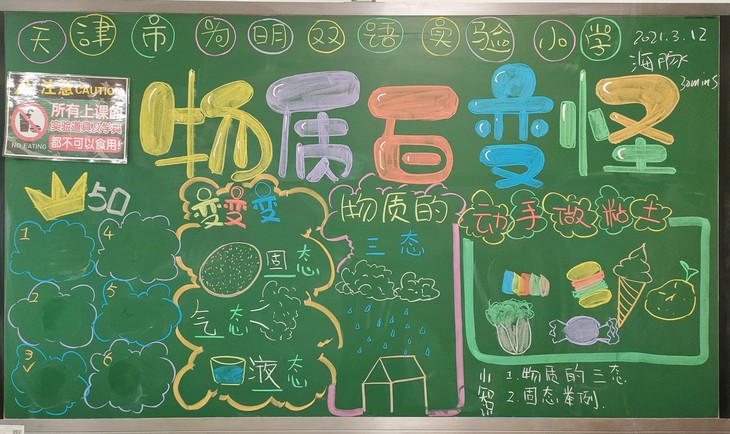 天津市尚明双语实验小学
2021.3.12
海豚
30mins
注意 CAUTION
所有上课的
实验道具及学具
都不可以食用!
NO EATING
物质百变怪
50
1
2
3
4
5
6
变变变
固态
气态
液态
物质的
三态
动手做粘土
小知识
1.物质的三态
2.固态举例.